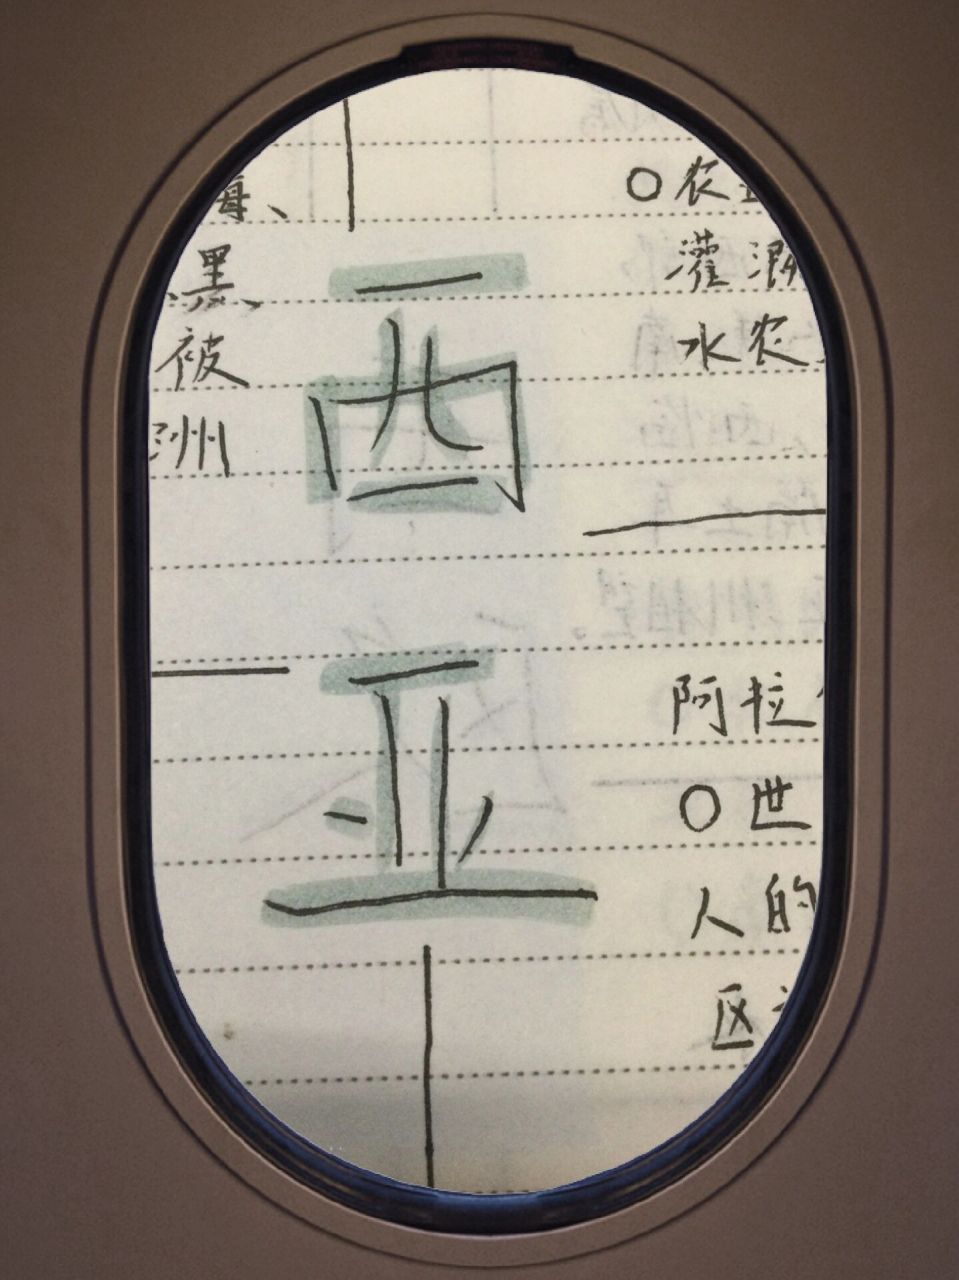 海、
黑、
被
洲
西
亚
○农
灌溉
水农
阿拉
○世
人的
区